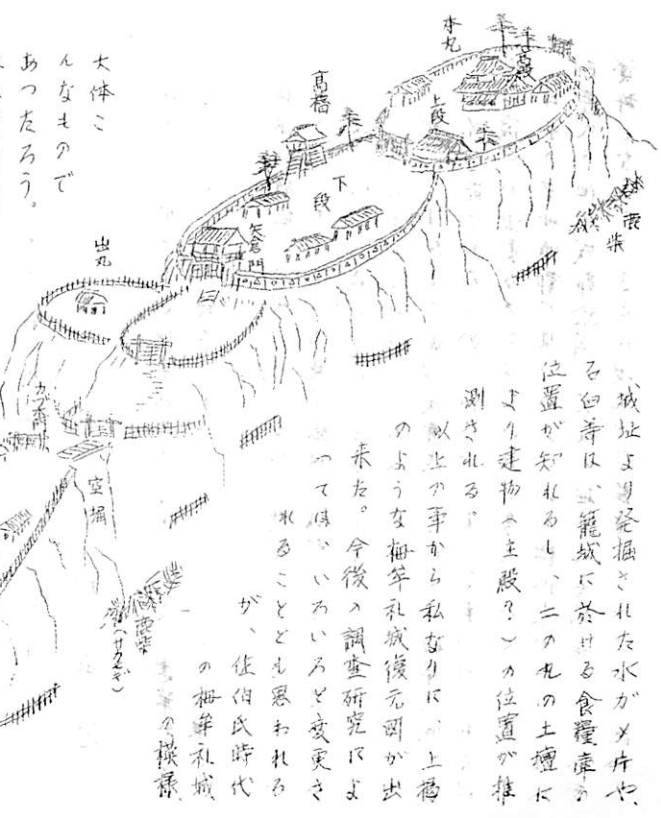 城址より発掘された水がメ片や、
石臼等は、籠城に於ける食糧庫の
位置が知れるし、二の丸の土壇に
より建物(主殿?)の位置が推
測される。
以上の事から私なりに、上掲
のような栂牟礼城復元図が出
来た。今後の調査研究によ
っては、いろいろと変更さ
れることとも思われる
が、佐伯氏時代
の栂牟礼城
の模様
大体こ
んなもので
あつたろう。
本丸
主殿
上段
高櫓
下段
矢倉門
出丸
カブキ門
空堀
鹿柴
鹿柴
(サカモギ)